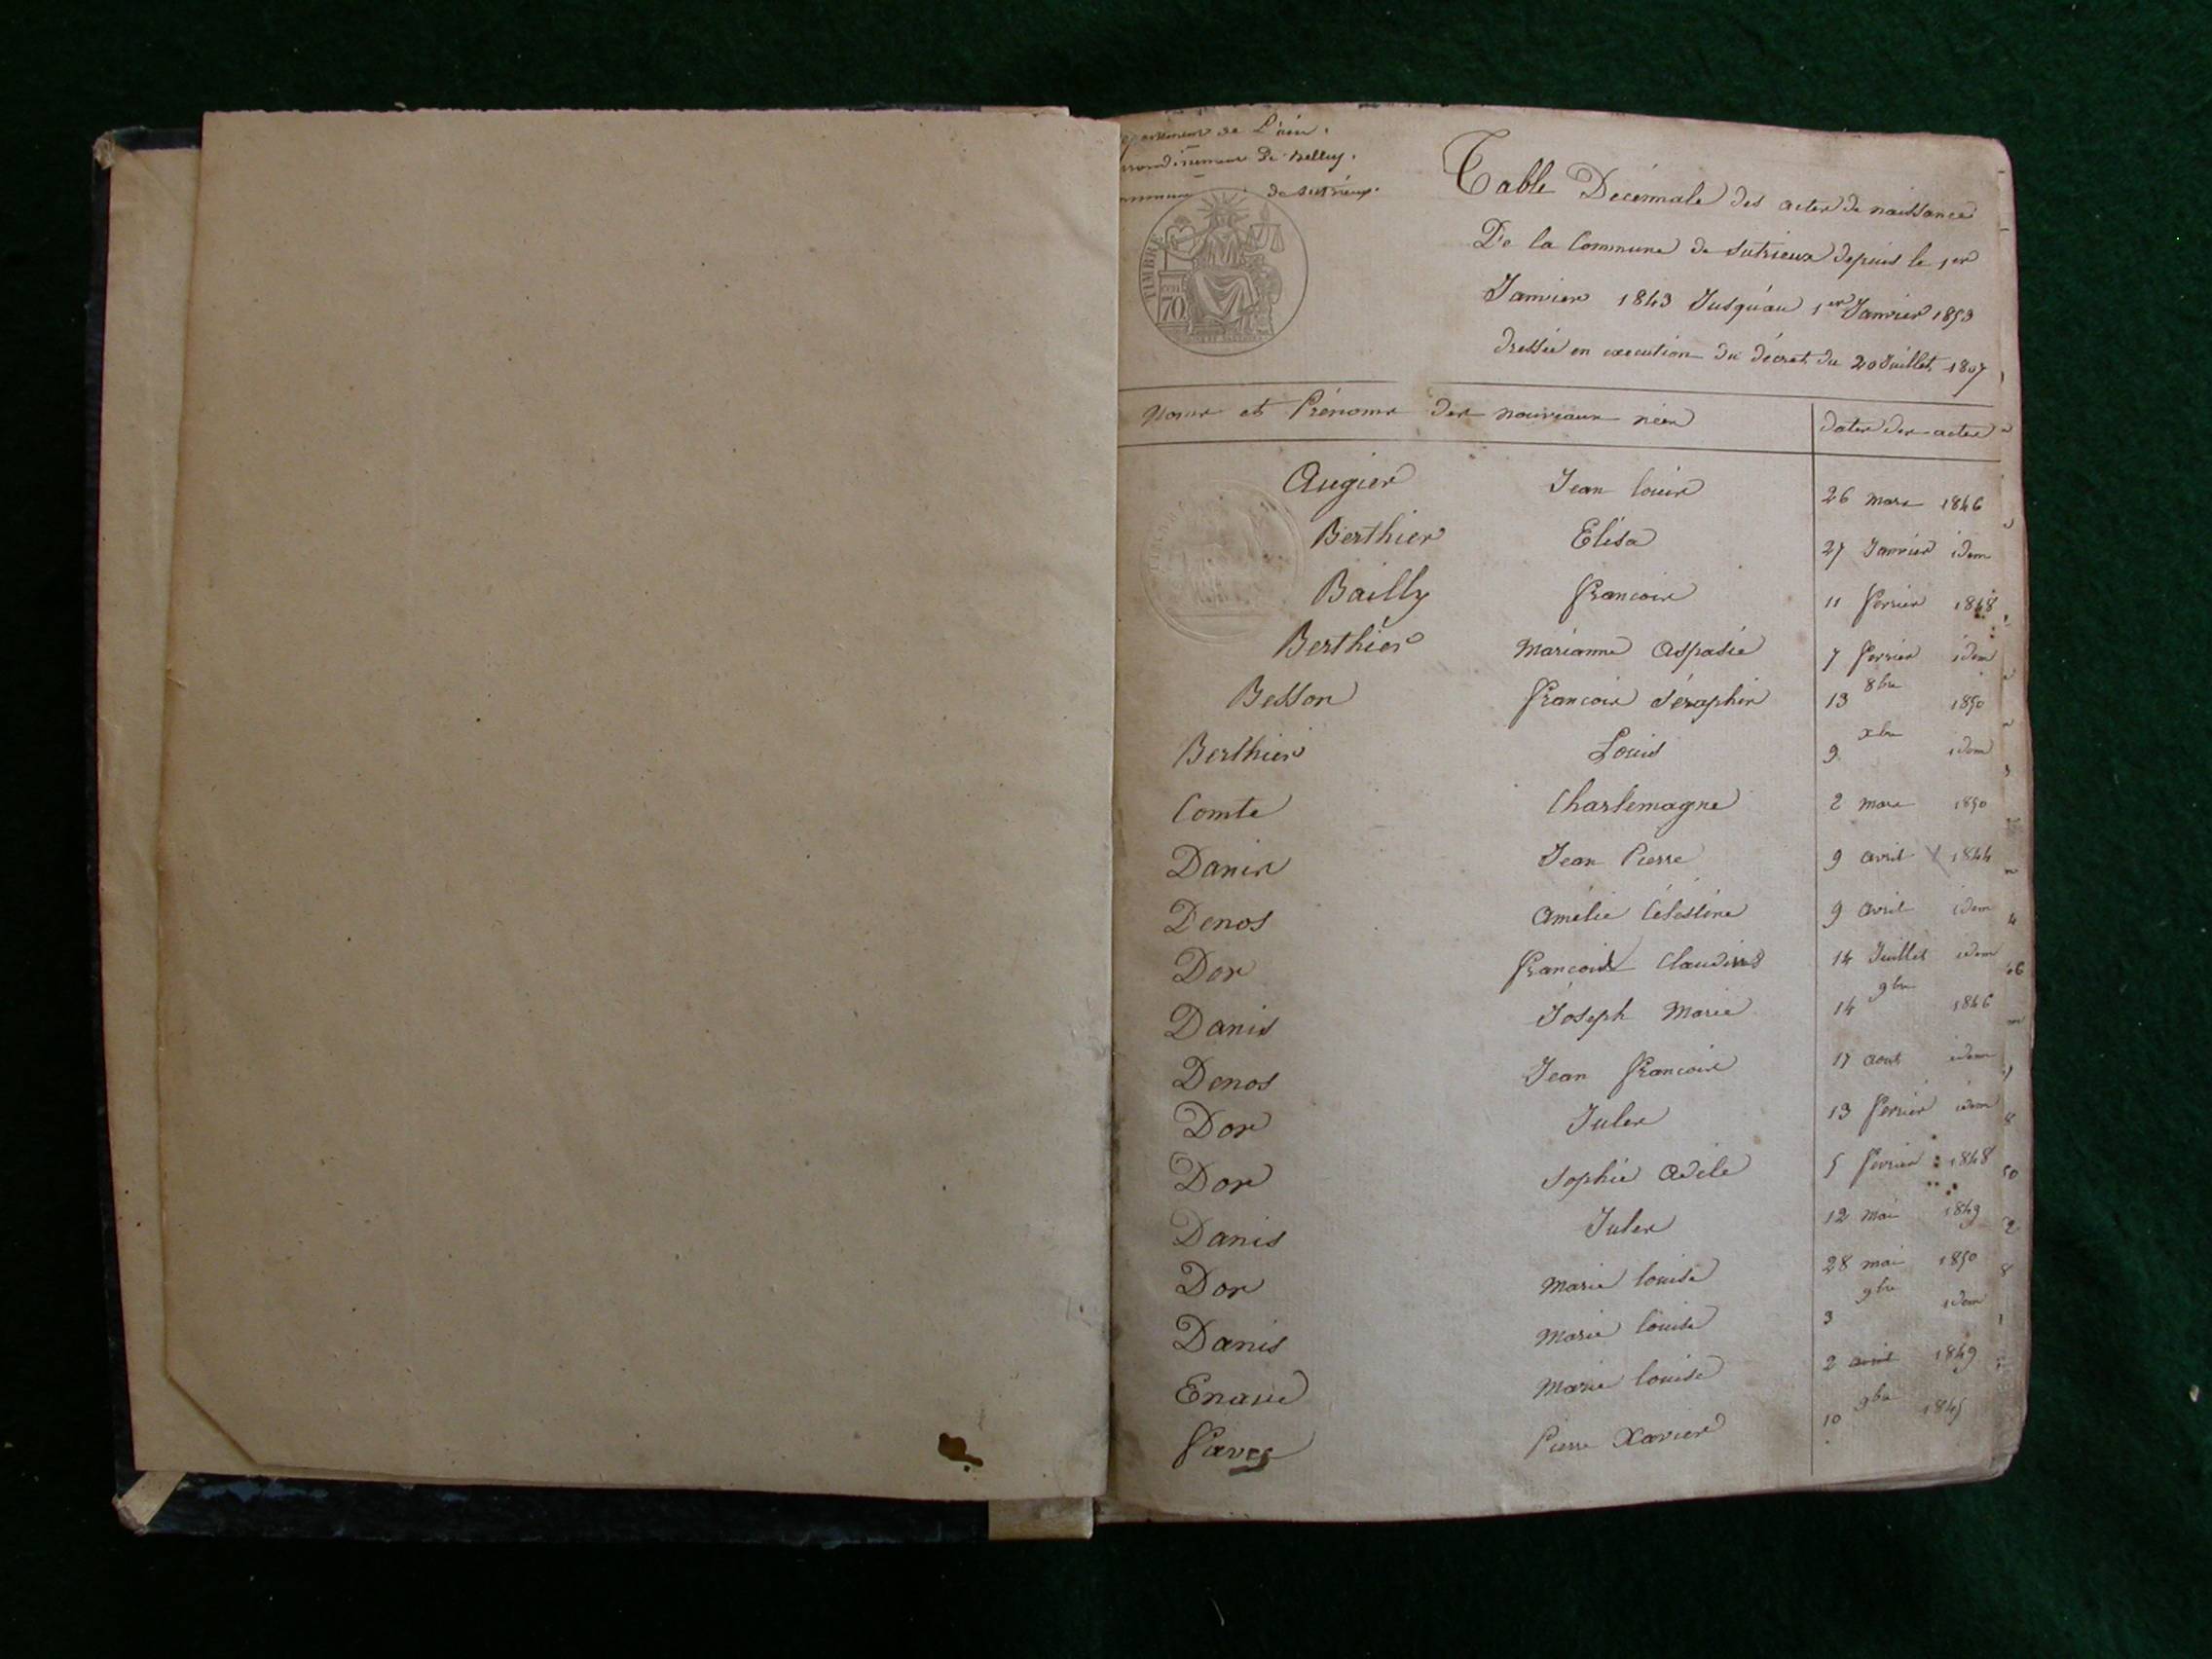 département de L'ain.
arrondissement De Belley.
commune de Sutrieux.
TIMBRE
CEN
70
Table Décennale des actes de naissance
De la Commune de Sutrieux depuis le 1er
Janvier 1843 Jusqu'au 1er Janvier 1853
dressée en execution du décret du 20 Juillet 1807
Noms et Prénoms des nouveaux nées dates des actes
Augier Jean Louis 26 mars 1846
Berthier Elisa 27 Janvier idem
Bailly francois 11 fevrier 1848
Berthier Marianne Aspasie 7 fevrier idem
Besson francois Séraphin 13 8bre 1850
Berthier Louis 9 xbre idem
Comte Charlemagne 2 mars 1850
Danis Jean Pierre 9 avril 1844
Denos Amélie Célestine 9 avril idem
Dor francois Claudius 14 Juillet idem
Danis Joseph Marie 14 9bre 1846
Denos Jean francois 17 aout idem
Dor Jules 13 fevrier idem
Dor Sophie Adele 5 fevrier 1848
Danis Jules 12 mai 1849
Dor Marie Louise 28 mai 1850
Danis Marie Louise 3 9bre idem
Marie Louise 2 avril 1849
Pierre Xavier 10 9bre 1845